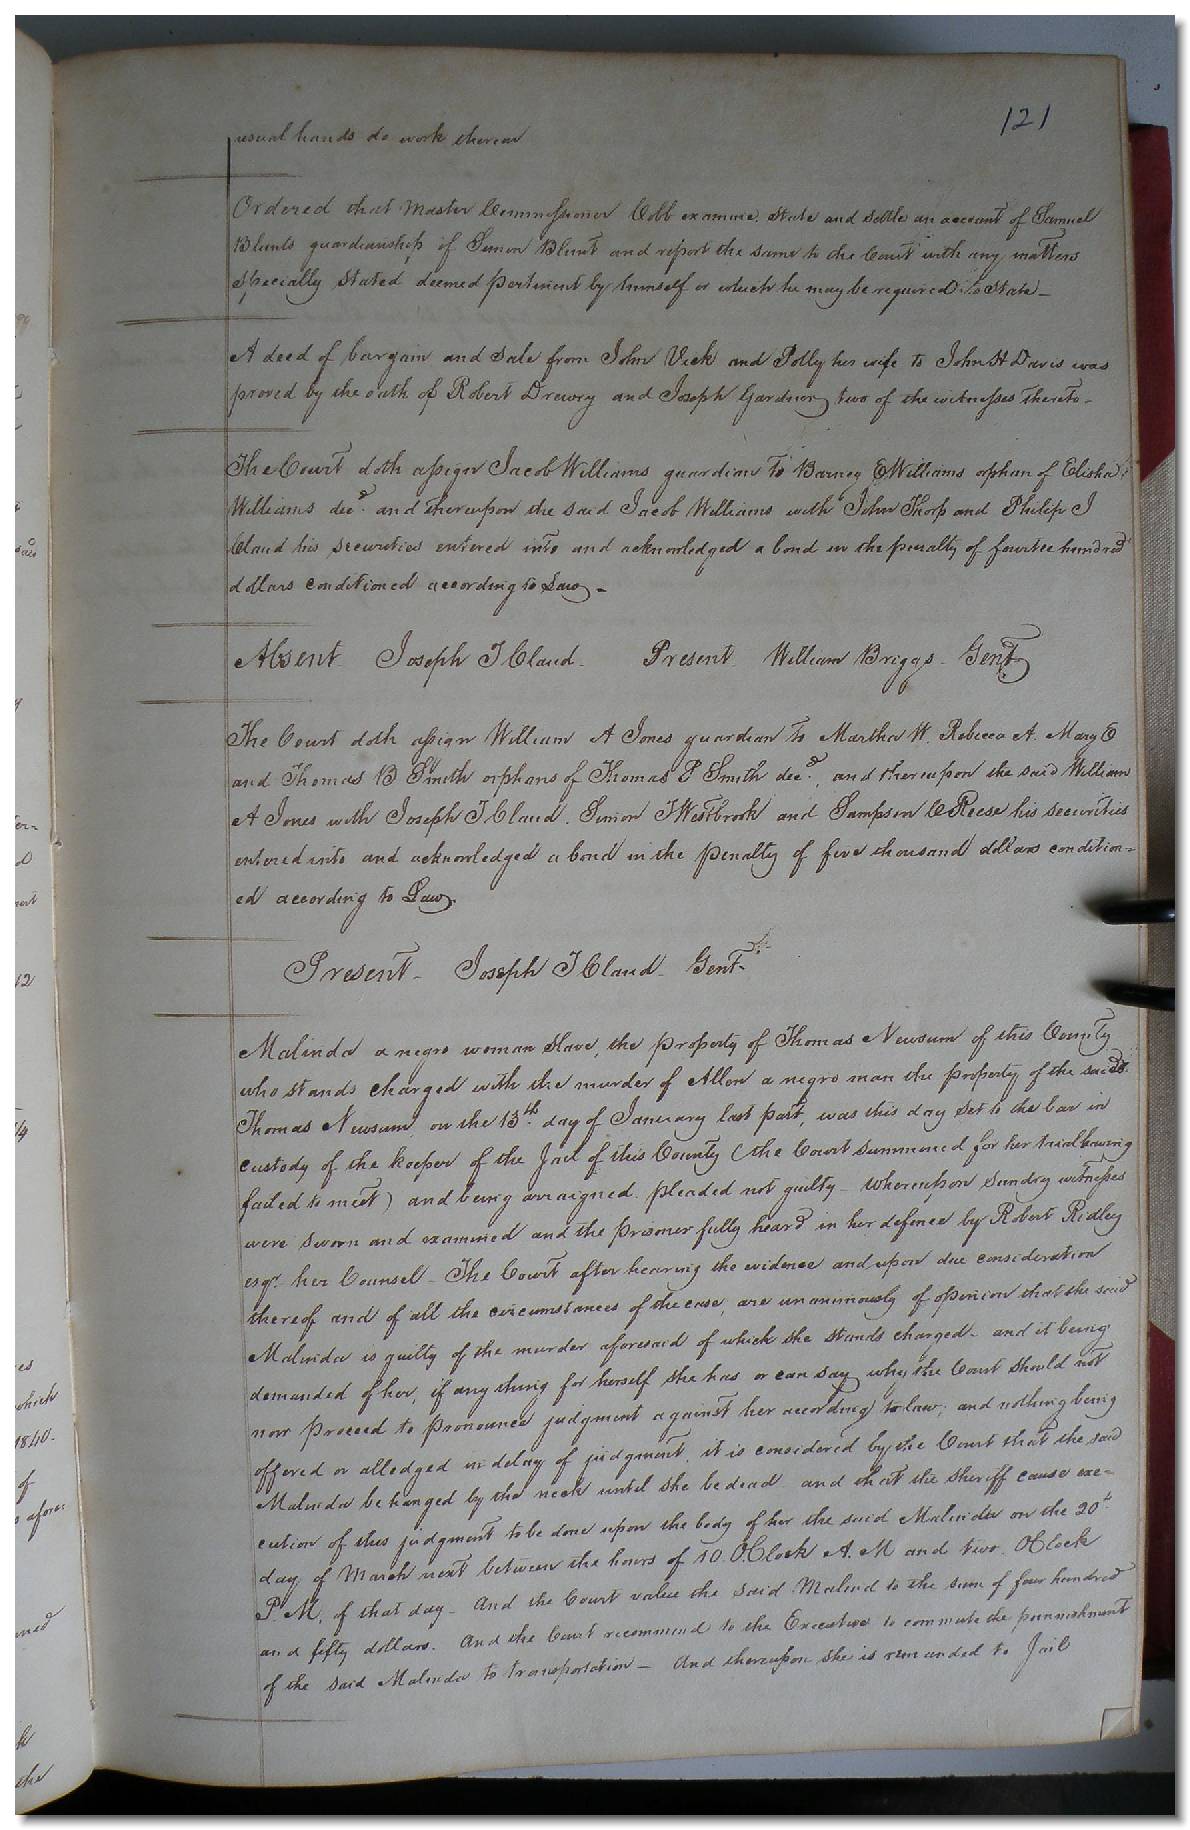 121
usual hands do work thereon
Ordered that Master Commissioner Cobb examine, state and settle an account of Samuel
Blunts guardianship of Simon Blunt and report the same to the Court with any matters
specially stated deemed pertinent by himself or which he may be required to state_
A deed of bargain and sale from John Vick and Polly his wife to John H Davis was
proved by the oath of Robert Drewry and Joseph Gardner two of the witnesses thereto_
The Court doth assign Jacob Williams guardian to Barney E Williams orphan of Elisha
Williams decd. and thereupon the said Jacob Williams with John Thorp and Philip J
Claud his securities entered into and acknowledged a bond in the penalty of fourtee hundred
dollars conditioned according to Law_
Absent Joseph T Claud_ Present William Briggs_ Gent
The Court doth assign William A Jones guardian to Martha W. Rebecca A. Mary E
and Thomas B Smith orphans of Thomas P Smith decd., and thereupon the said William
A Jones with Joseph T Claud, Simon T Westbrook and Sampson C Reese his securities
entered into and acknowledged a bond in the penalty of five thousand dollars condition=
ed according to Law.
Present_ Joseph T Claud_ Gent.
Malinda a negro woman slave, the property of Thomas Newsum of this County
who stands charged with the murder of Allen a negro man the property of the said
Thomas Newsum, on the 13th day of January last past, was this day set to the bar in
custody of the keeper of the Jail of this County (the Court summoned for her trial having
failed to meet) and being arraigned pleaded not guilty_ Whereupon sundry witnesses
were sworn and examined and the prisoner fully heard in her defence by Robert Ridley
esqr. her Counsel_ The Court after hearing the evidence and upon due consideration
thereof and of all the circumstances of the case, are unanimously of opinion that the said
Malinda is guilty of the murder aforesaid of which she stands charged_ and it being
demanded of her, if any thing for herself she has or can say why the Court should not
now proceed to pronounce judgment against her according to law; and nothing being
offered or alledged in delay of judgment, it is considered by the Court that the said
Malinda be hanged by the neck until she be dead and that the sheriff cause exe=
cution of this judgment to be done upon the body of her the said Malinda on the 20th
day of March next between the hours of 10 O.Clock A.M and two OClock
P M. of that day_ And the Court value the said Malind to the sum of four hundred
and fifty dollars. And the Court recommend to the Executive to commute the punnishment
of the said Malinda to transportation_ And thereupon she is remanded to Jail